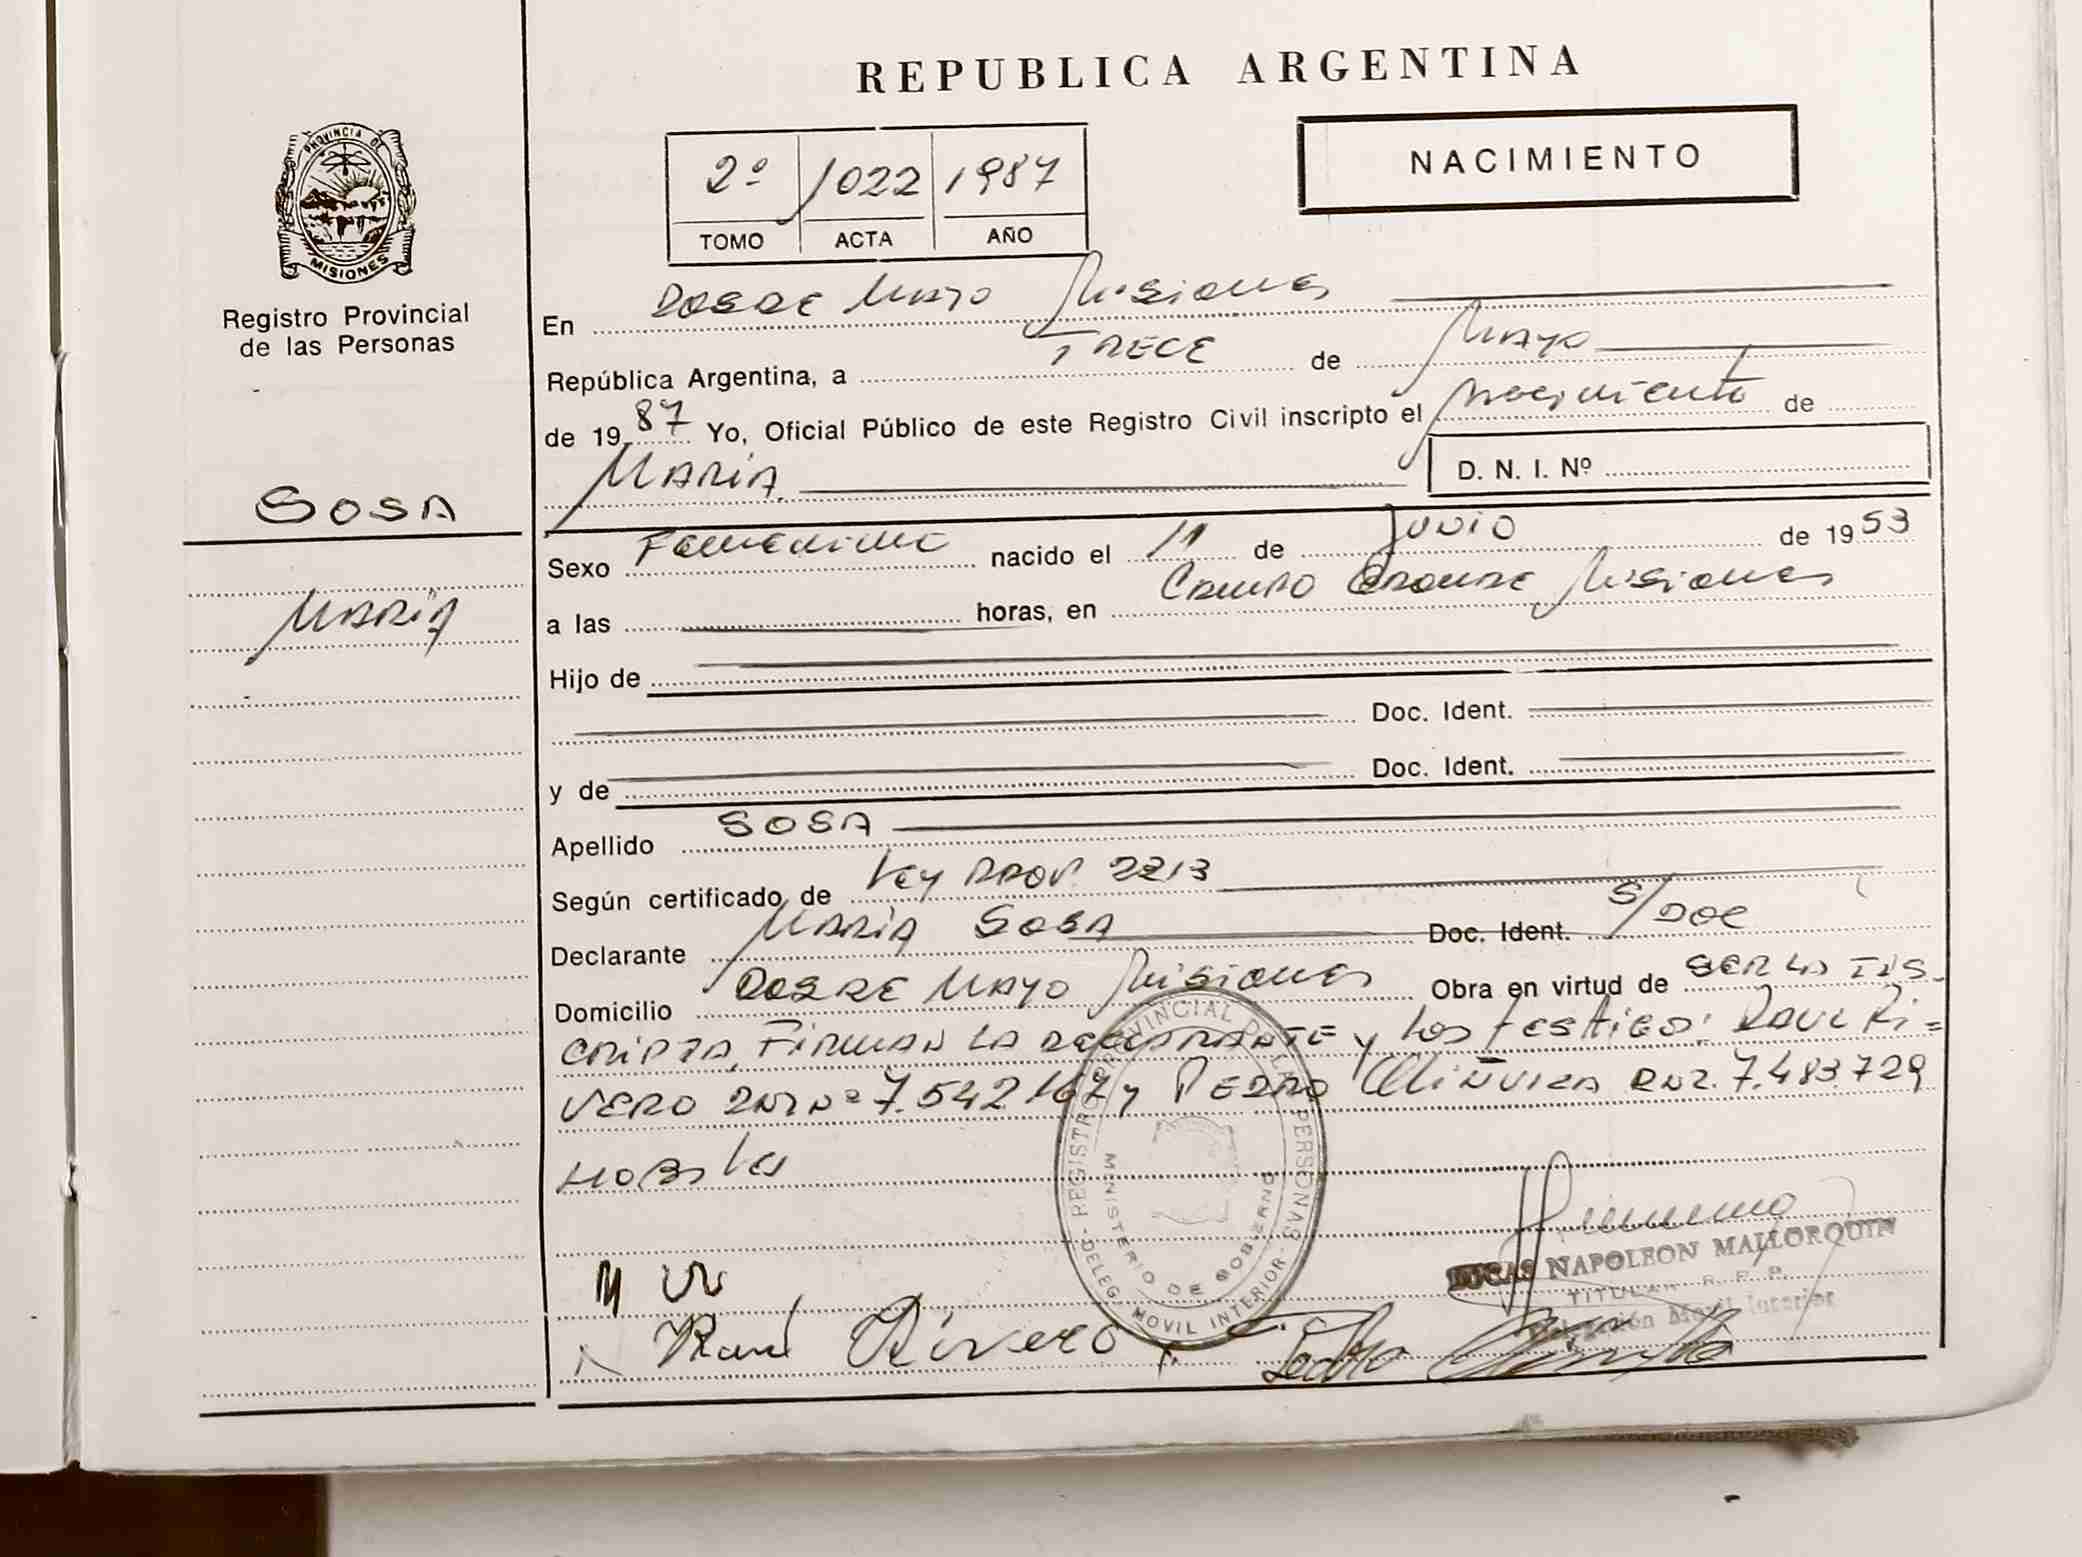 REPUBLICA ARGENTINA
PROVINCIA DE
MISIONES
Registro Provincial
de las Personas
2º 1022 1987
TOMO ACTA AÑO
NACIMIENTO
En DOS DE MAYO Misiones
República Argentina, a TRECE de MAYO
de 1987 Yo, Oficial Público de este Registro Civil inscripto el Nacimiento de
MARIA
D. N. I. Nº
SOSA
MARIA
Sexo Femenino nacido el 11 de JUNIO de 1953
a las horas, en CAMPO GRANDE Misiones
Hijo de
Doc. Ident.
y de Doc. Ident.
Apellido SOSA
Según certificado de Ley PROV. 2213
Declarante MARIA SOSA Doc. Ident. S/DOC
Domicilio DOS DE MAYO Misiones Obra en virtud de SER LA INS-
CRIPTA, FIRMAN LA DECLARANTE y LOS TESTIGOS: RAUL RI=
VERO DNI Nº 7.542.167 y PEDRO DNI. 7.483.729
REGISTRO PROVINCIAL DE LAS PERSONAS
MINISTERIO DE GOBIERNO
DELEG. MOVIL INTERIOR
LUCAS NAPOLEON MALLORQUIN
TITULAR R. P. P.
Delegación Movil Interior
Raul Rivero